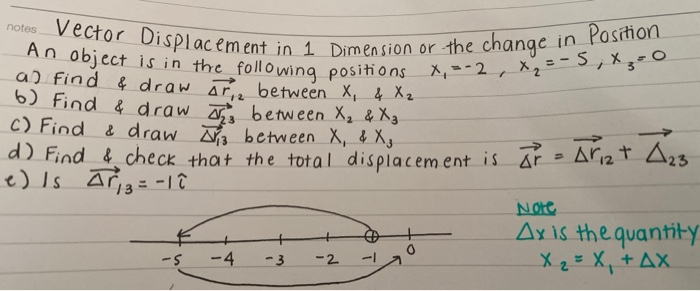 notes
Vector Displacement in 1 Dimension or the change in Position
An object is in the following positions x₁=-2, x₂=-5, x₃=0
a) Find & draw Δr⃗₁₂ between x₁ & x₂
b) Find & draw Δr⃗₂₃ between x₂ & x₃
c) Find & draw Δr⃗₁₃ between x₁ & x₃
d) Find & check that the total displacement is Δr⃗ = Δr⃗₁₂ + Δ⃗₂₃
e) Is Δr⃗₁₃ = -1î
-5 -4 -3 -2 -1 0
Note
Δx is the quantity
x₂ = x₁ + Δx